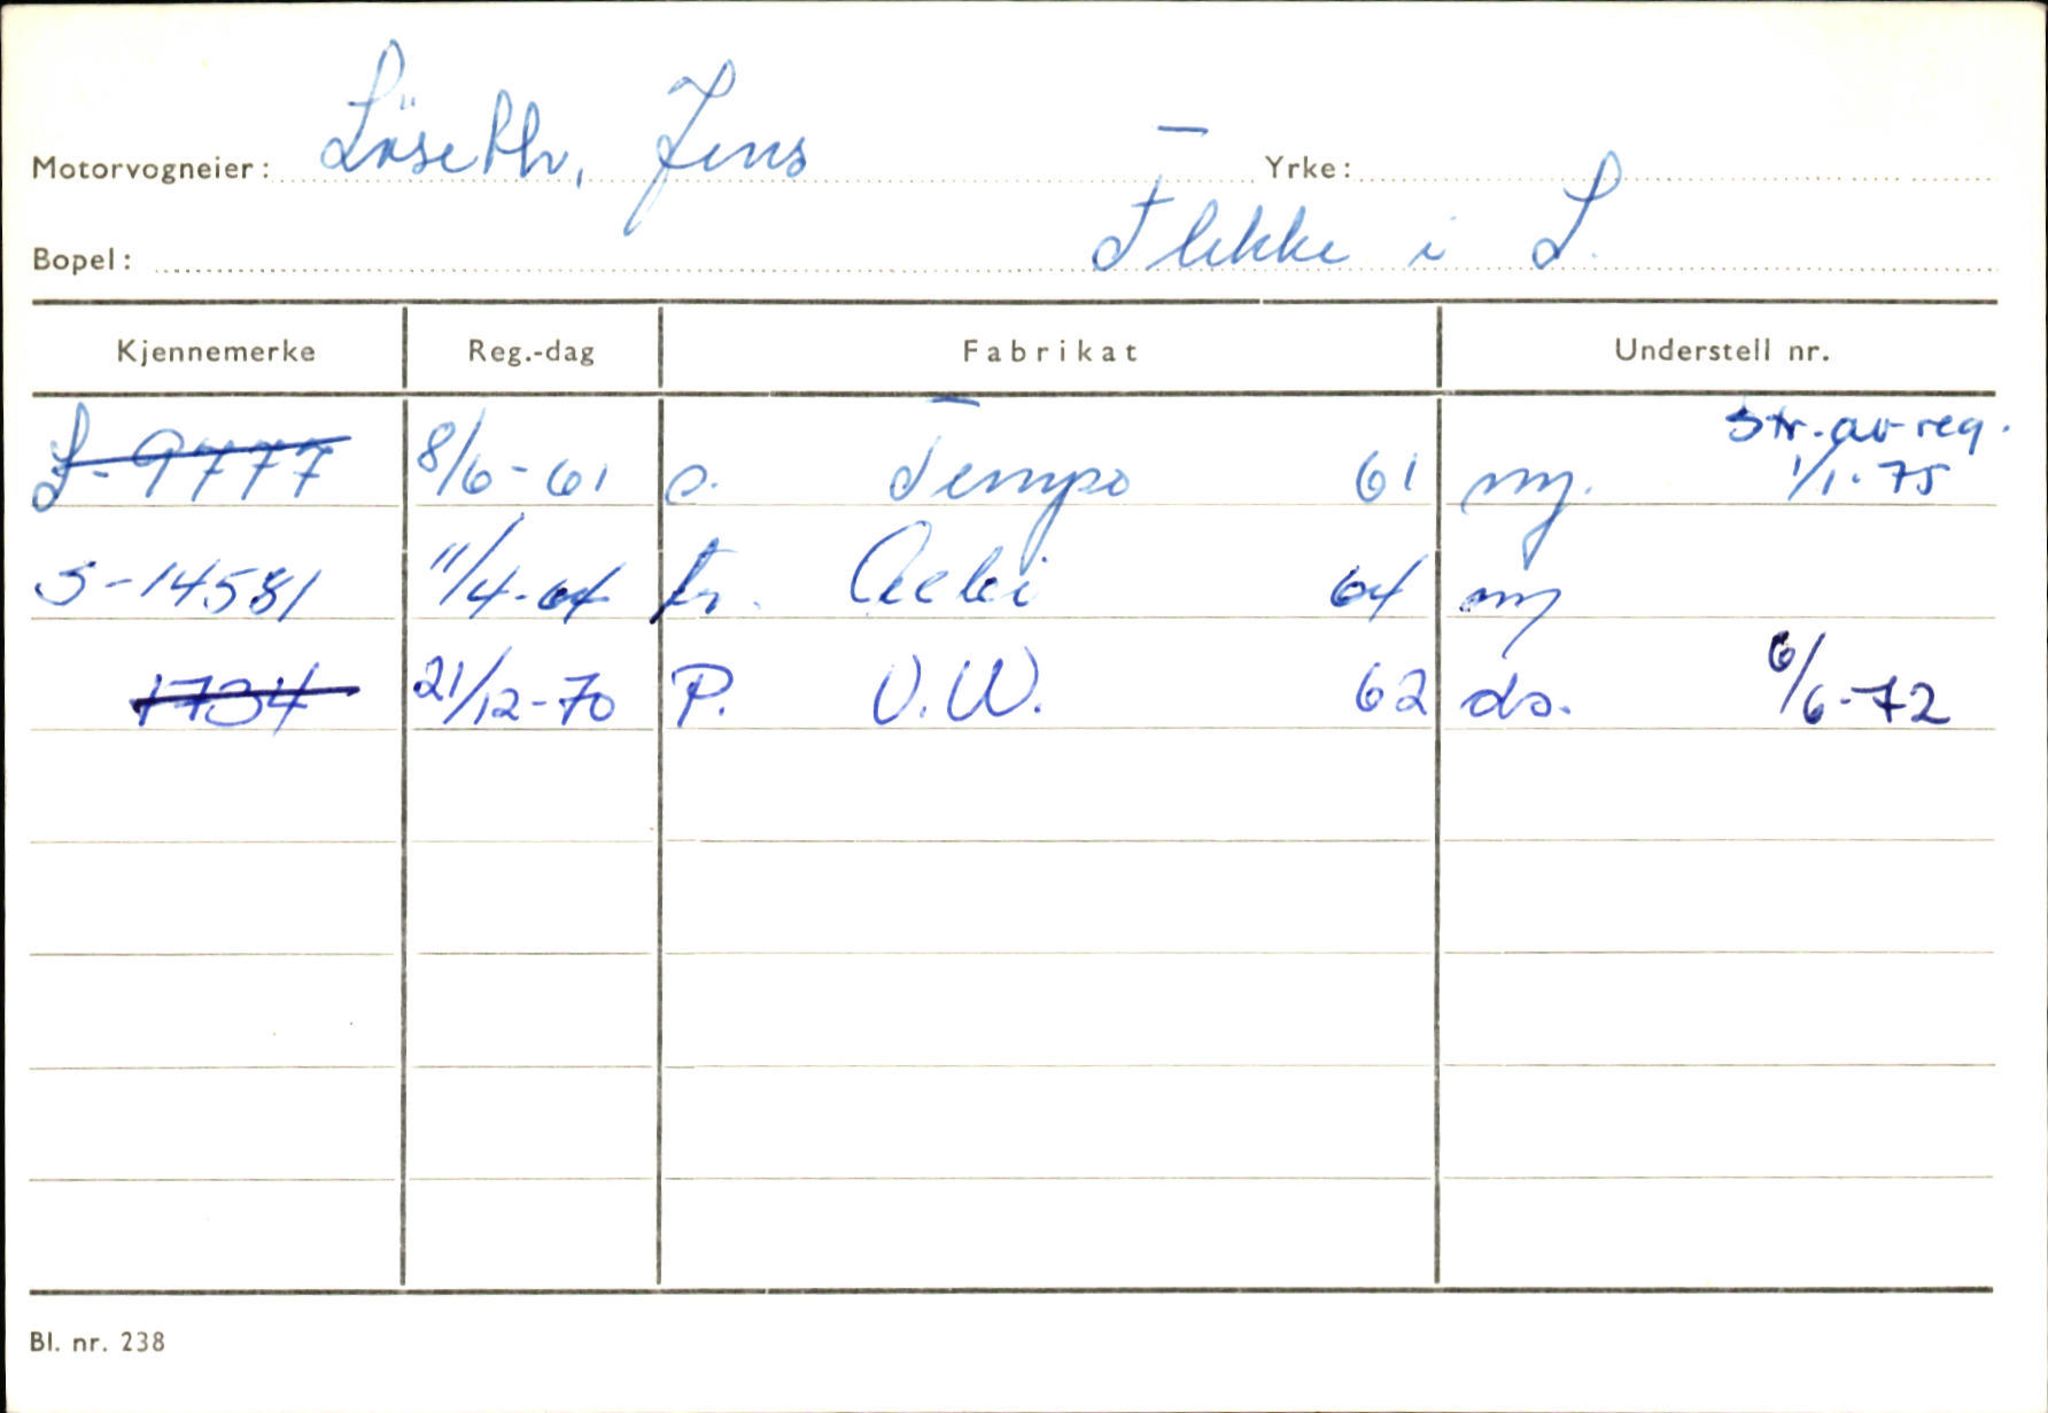 Motorvogneier: Löseth, Jens Yrke:
Bopel: Flekke i L.
Kjennemerke Reg.-dag Fabrikat Understell nr.
str. av reg.
S-9777 8/6-61 c. Tempo 61 ny. 1/1-75
S-14581 11/4-64 tr. Aebi 64 ny
1734 21/12-70 P. V.W. 62 do. 6/6-72
Bl. nr. 238